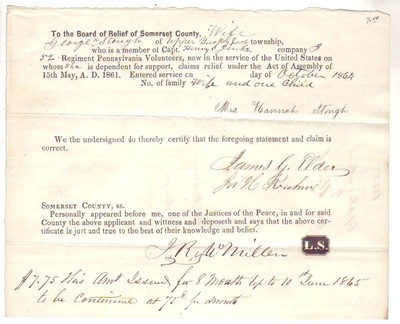 7.50
Wife
To the Board of Relief of Somerset County,
George Stough of Upper Turkeyfoot township,
who is a member of Capt. Henry company I
52 Regiment Pennsylvania Volunteers, now in the service of the United States on
whom she is dependent for support, claims relief under the Act of Assembly of
15th May, A. D. 1861. Entered service on day of October 1864
No. of family Wife and one Child
Mrs Hannah Stough
We the undersigned do hereby certify that the foregoing statement and claim is
correct.
James G. Elder
Jos H
SOMERSET COUNTY, SS.
Personally appeared before me, one of the Justices of the Peace, in and for said
County the above applicant and witness and deposeth and says that above
certificate is just and true to the best of their knowledge and belief.
J. R. McMillen L.S.
$7.75 This Amt Issued for 8 Month Up to 10th June 1865
to be Continued at 75c pr Month